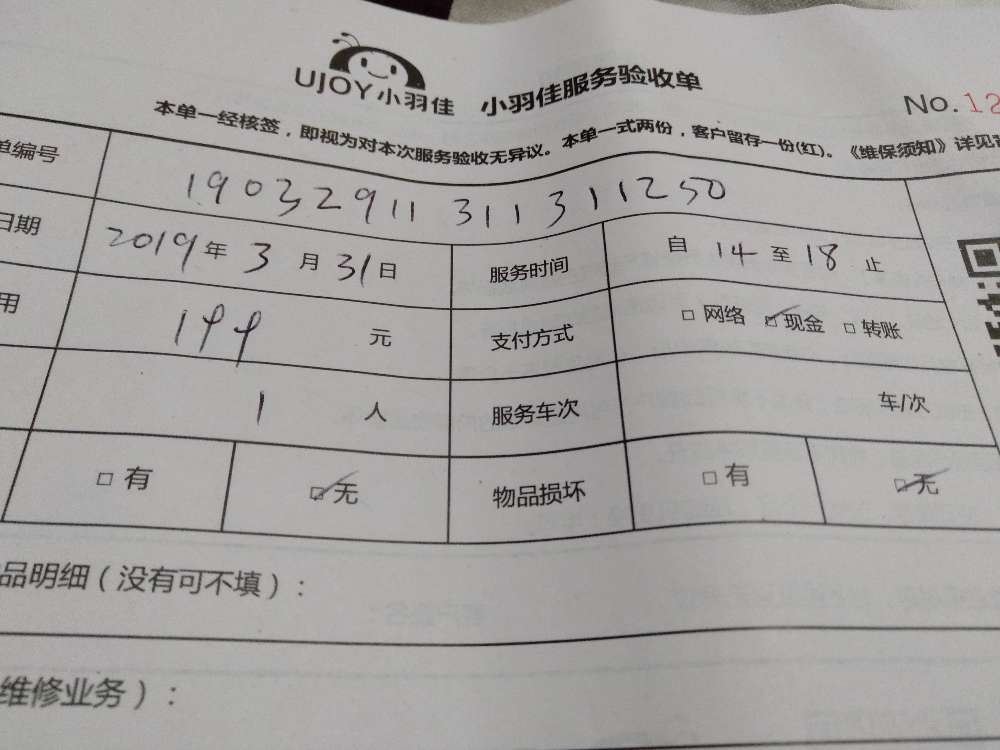 UJOY小羽佳 小羽佳服务验收单
No.12
本单一经核签，即视为对本次服务验收无异议。本单一式两份，客户留存一份(红)。《维保须知》详见
单编号 19032911311311250
日期 2019年3月31日 服务时间 自14至18止
用 199元 支付方式 □网络 ☑现金 □转账
1人 服务车次 车/次
□有 ☑无 物品损坏 □有 ☑无
品明细（没有可不填）：
维修业务）：